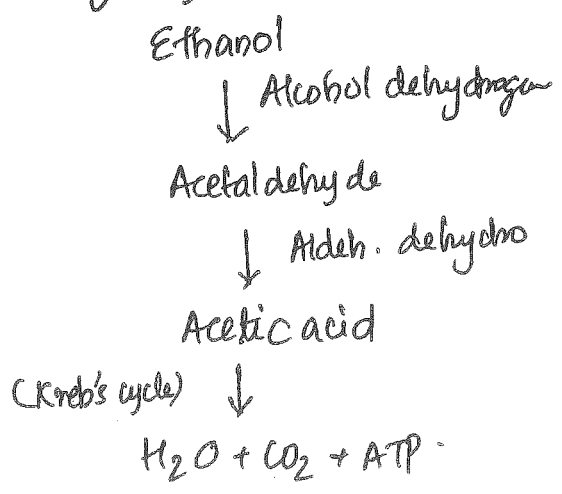 Ethanol
↓ Alcohol dehydrogen
Acetaldehyde
↓ Aldeh. dehydro
Acetic acid
(Kreb's cycle) ↓
H₂O + CO₂ + ATP.